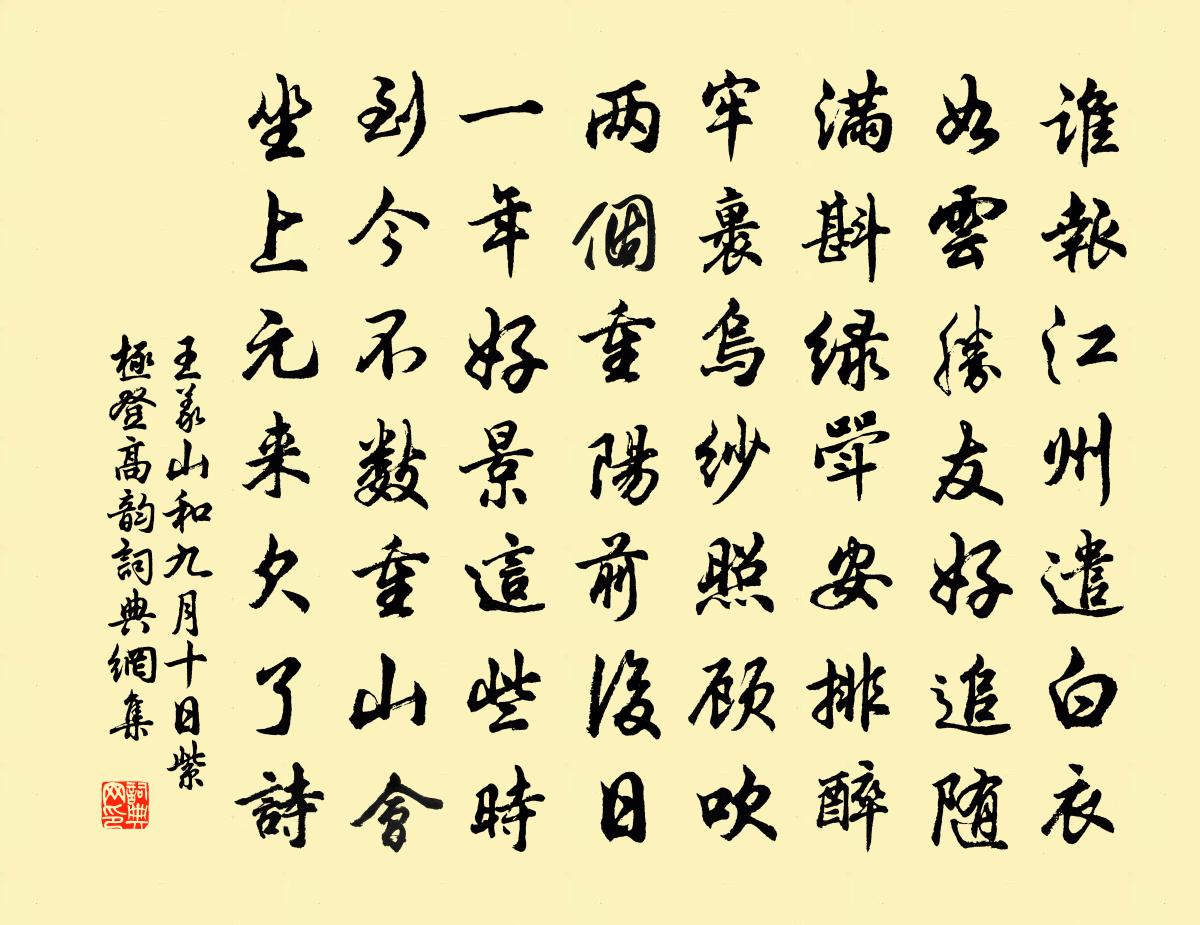 誰報江州遣白衣
如雲勝友好追随
滿斟绿斝安排醉
牢裹烏紗照顾吹
两個重陽前後日
一年好景這些時
到今不数重山會
坐上元来欠了詩
王義山和九月十日紫
極登高韵詞典網集
詞典
网印